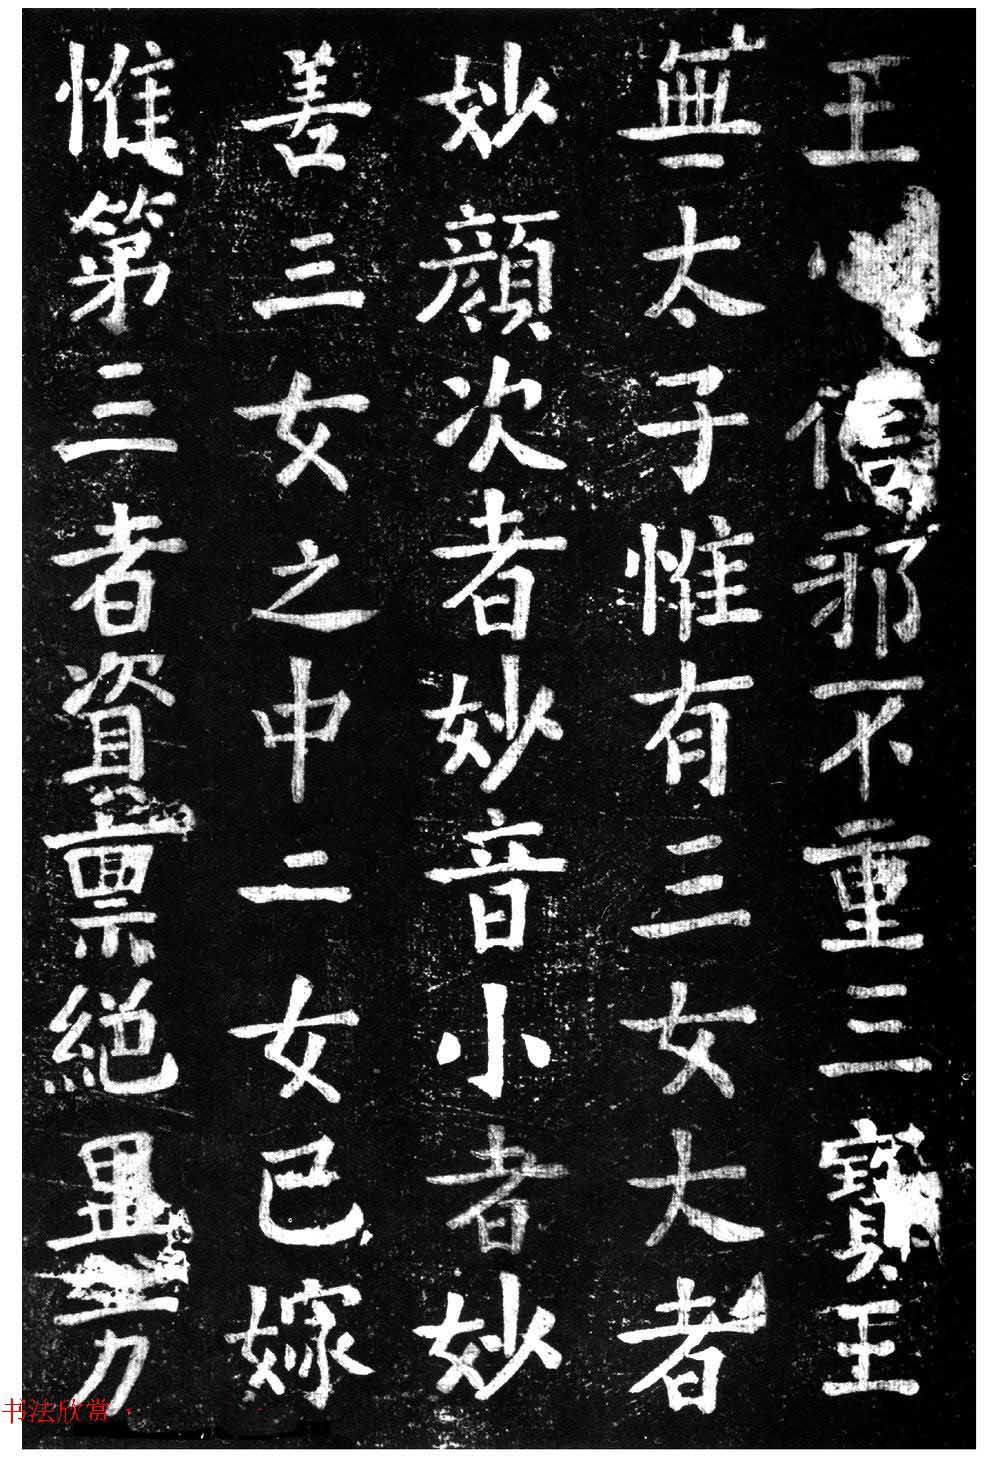 王信邪不重三寶王
無太子惟有三女大者
妙顏次者妙音小者妙
善三女之中二女已嫁
惟第三者資稟絕
书法欣赏